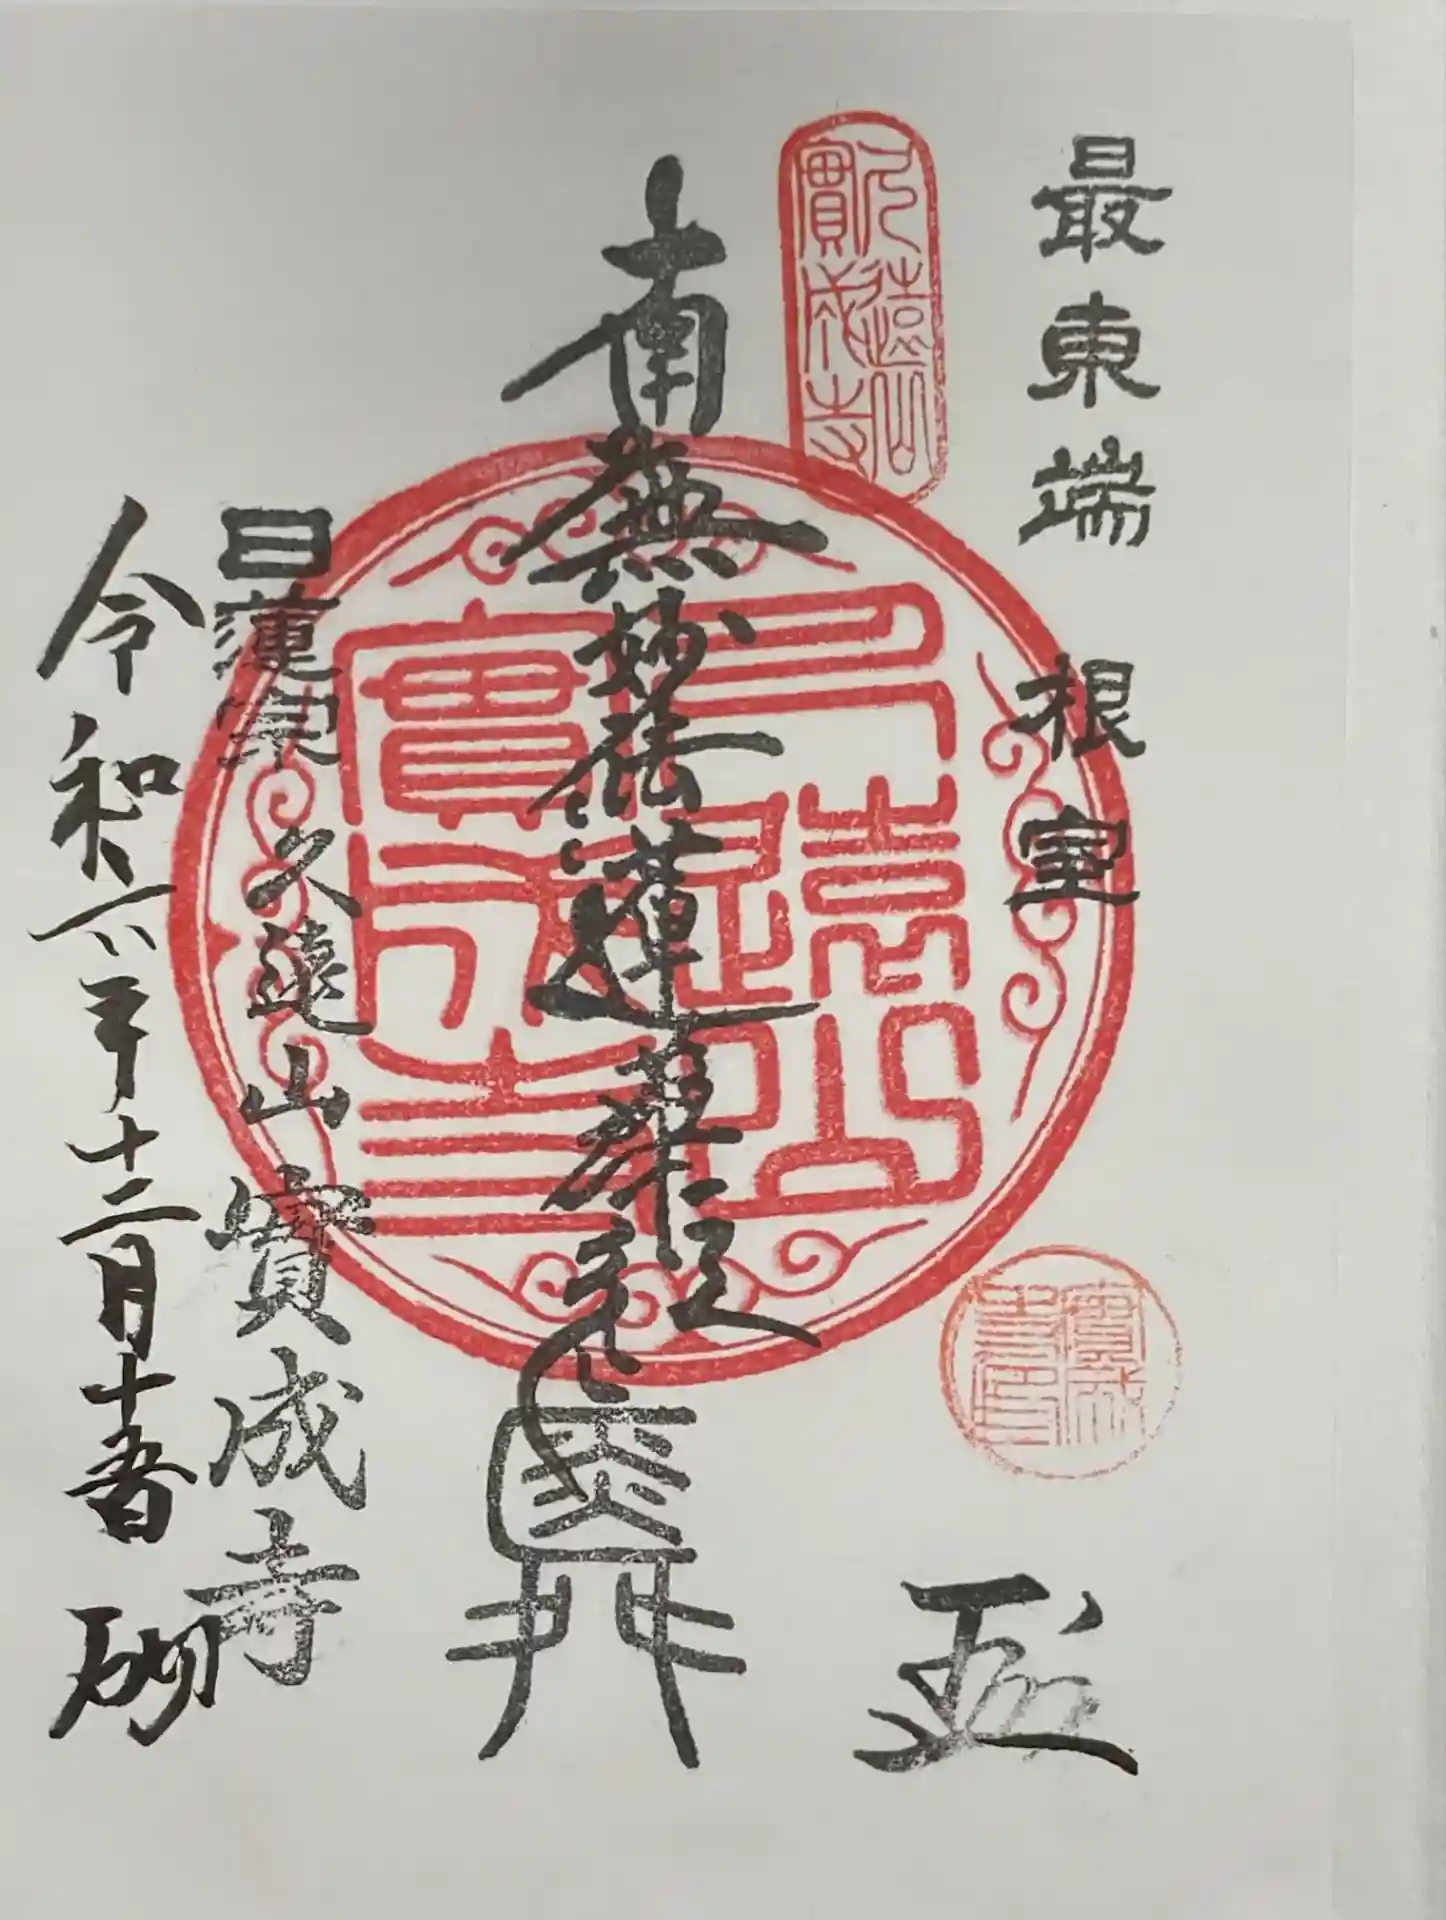 最東端 根室
久遠山
實成寺
久遠山
實成寺
南無妙法蓮華経
日蓮宗 久遠山 實成寺
令和六年十二月十五日 砌